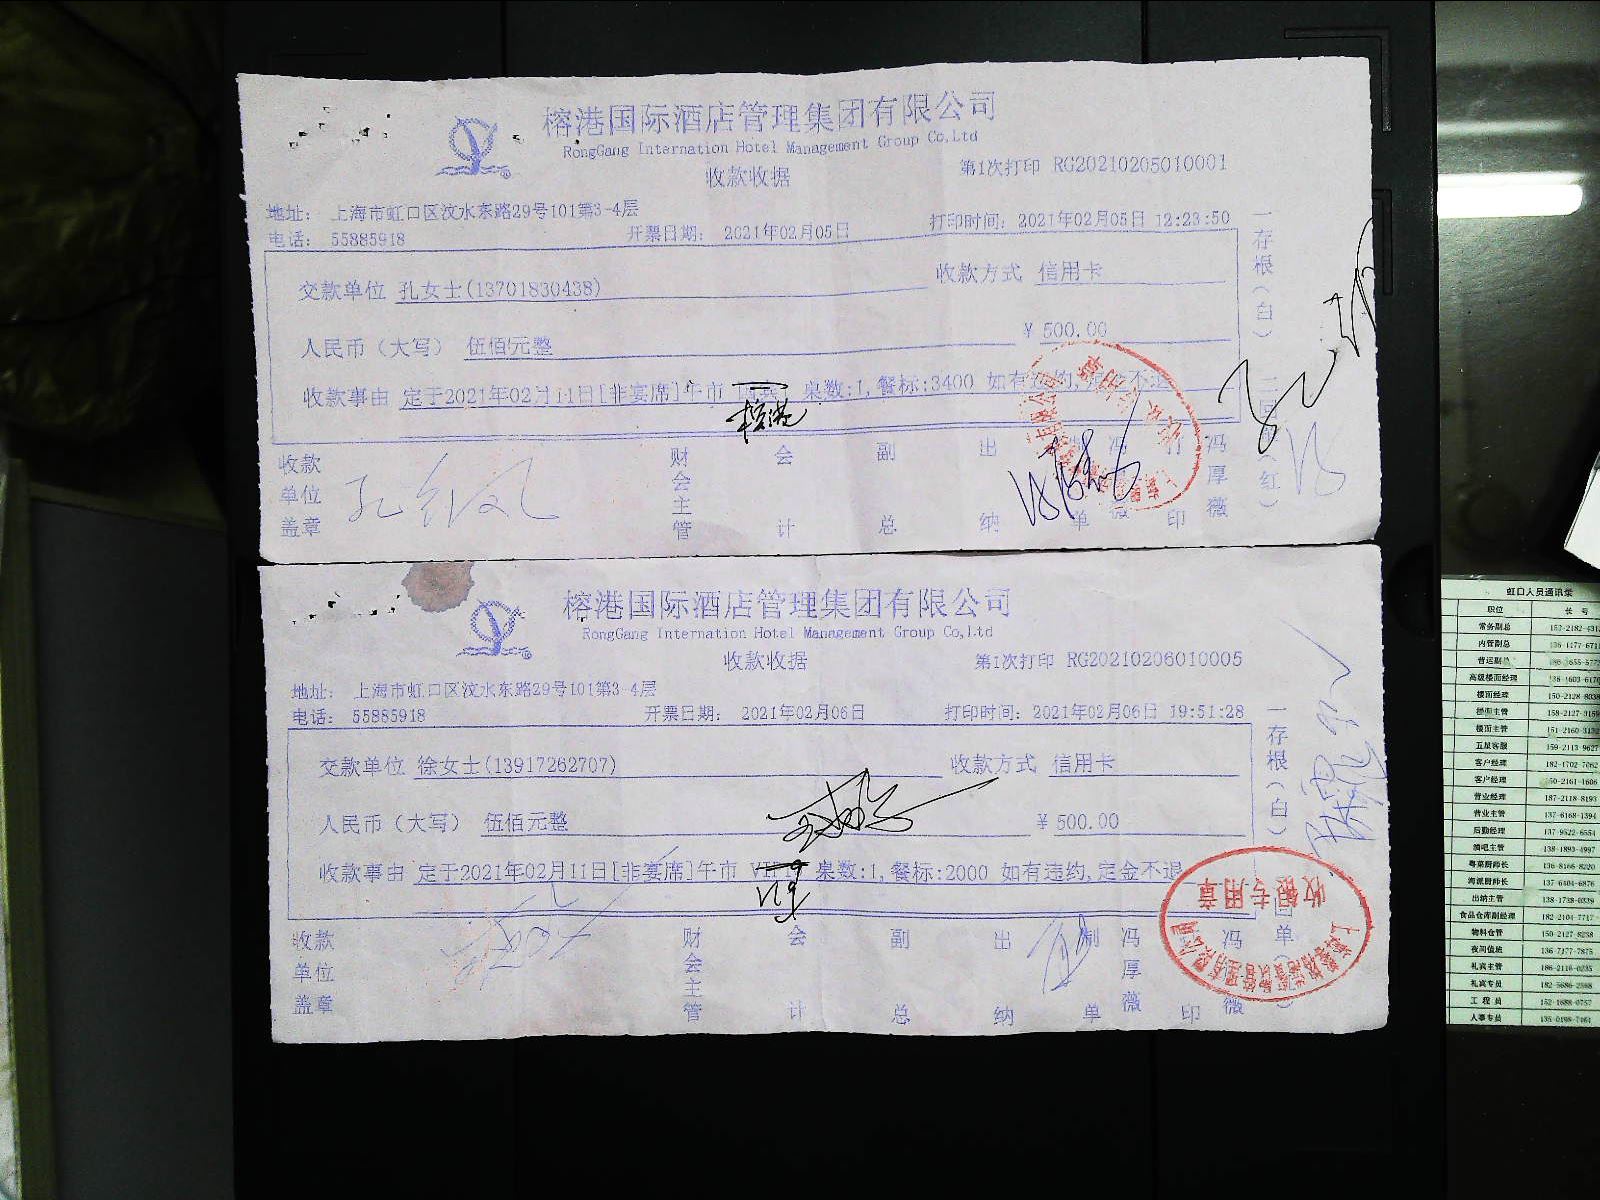 榕港国际酒店管理集团有限公司
RongGang Internation Hotel Management Group Co,Ltd
收款收据
第1次打印 RG20210205010001
地址： 上海市虹口区汶水东路29号101第3-4层
电话： 55885918 开票日期： 2021年02月05日 打印时间：2021年02月05日 12:23:50
交款单位 孔女士(13701830438) 收款方式 信用卡
人民币（大写） 伍佰元整 ¥ 500.00
收款事由 定于2021年02月11日[非宴席]午市 桌数:1,餐标:3400 如有违约,定金不退
榕港
收款单位盖章 财会主管 会计 副总 出纳 制单 冯厚薇 打印 冯厚薇
一存根（白） 二回单（红）
榕港国际酒店管理集团有限公司
RongGang Internation Hotel Management Group Co,Ltd
收款收据
第1次打印 RG20210206010005
地址： 上海市虹口区汶水东路29号101第3-4层
电话： 55885918 开票日期： 2021年02月06日 打印时间：2021年02月06日 19:51:28
交款单位 徐女士(13917262707) 收款方式 信用卡
人民币（大写） 伍佰元整 ¥ 500.00
收款事由 定于2021年02月11日[非宴席]午市 桌数:1,餐标:2000 如有违约,定金不退
V19
收款单位盖章 财会主管 会计 副总 出纳 制单 冯厚薇 印 冯薇
一存根（白） 回单
收银专用章
虹口人员通讯录
职位 长号
常务副总
内管副总
营运副总
高级楼面经理
楼面经理
楼面主管
楼面主管
五星客服
客户经理
客户经理
营业经理 187-2118-8193
营业主管 137-6168-1394
后勤经理 137-9522-6554
酒吧主管 138-1893-4997
粤菜厨师长 136-8166-8220
海派厨师长 137-6404-6876
出纳主管 138-1738-0339
食品仓库副经理
物料仓管 150-2127-8238
夜间值班 136-7177-7875
礼宾主管 186-2116-0235
礼宾专员
工程员 152-1688-0757
人事专员